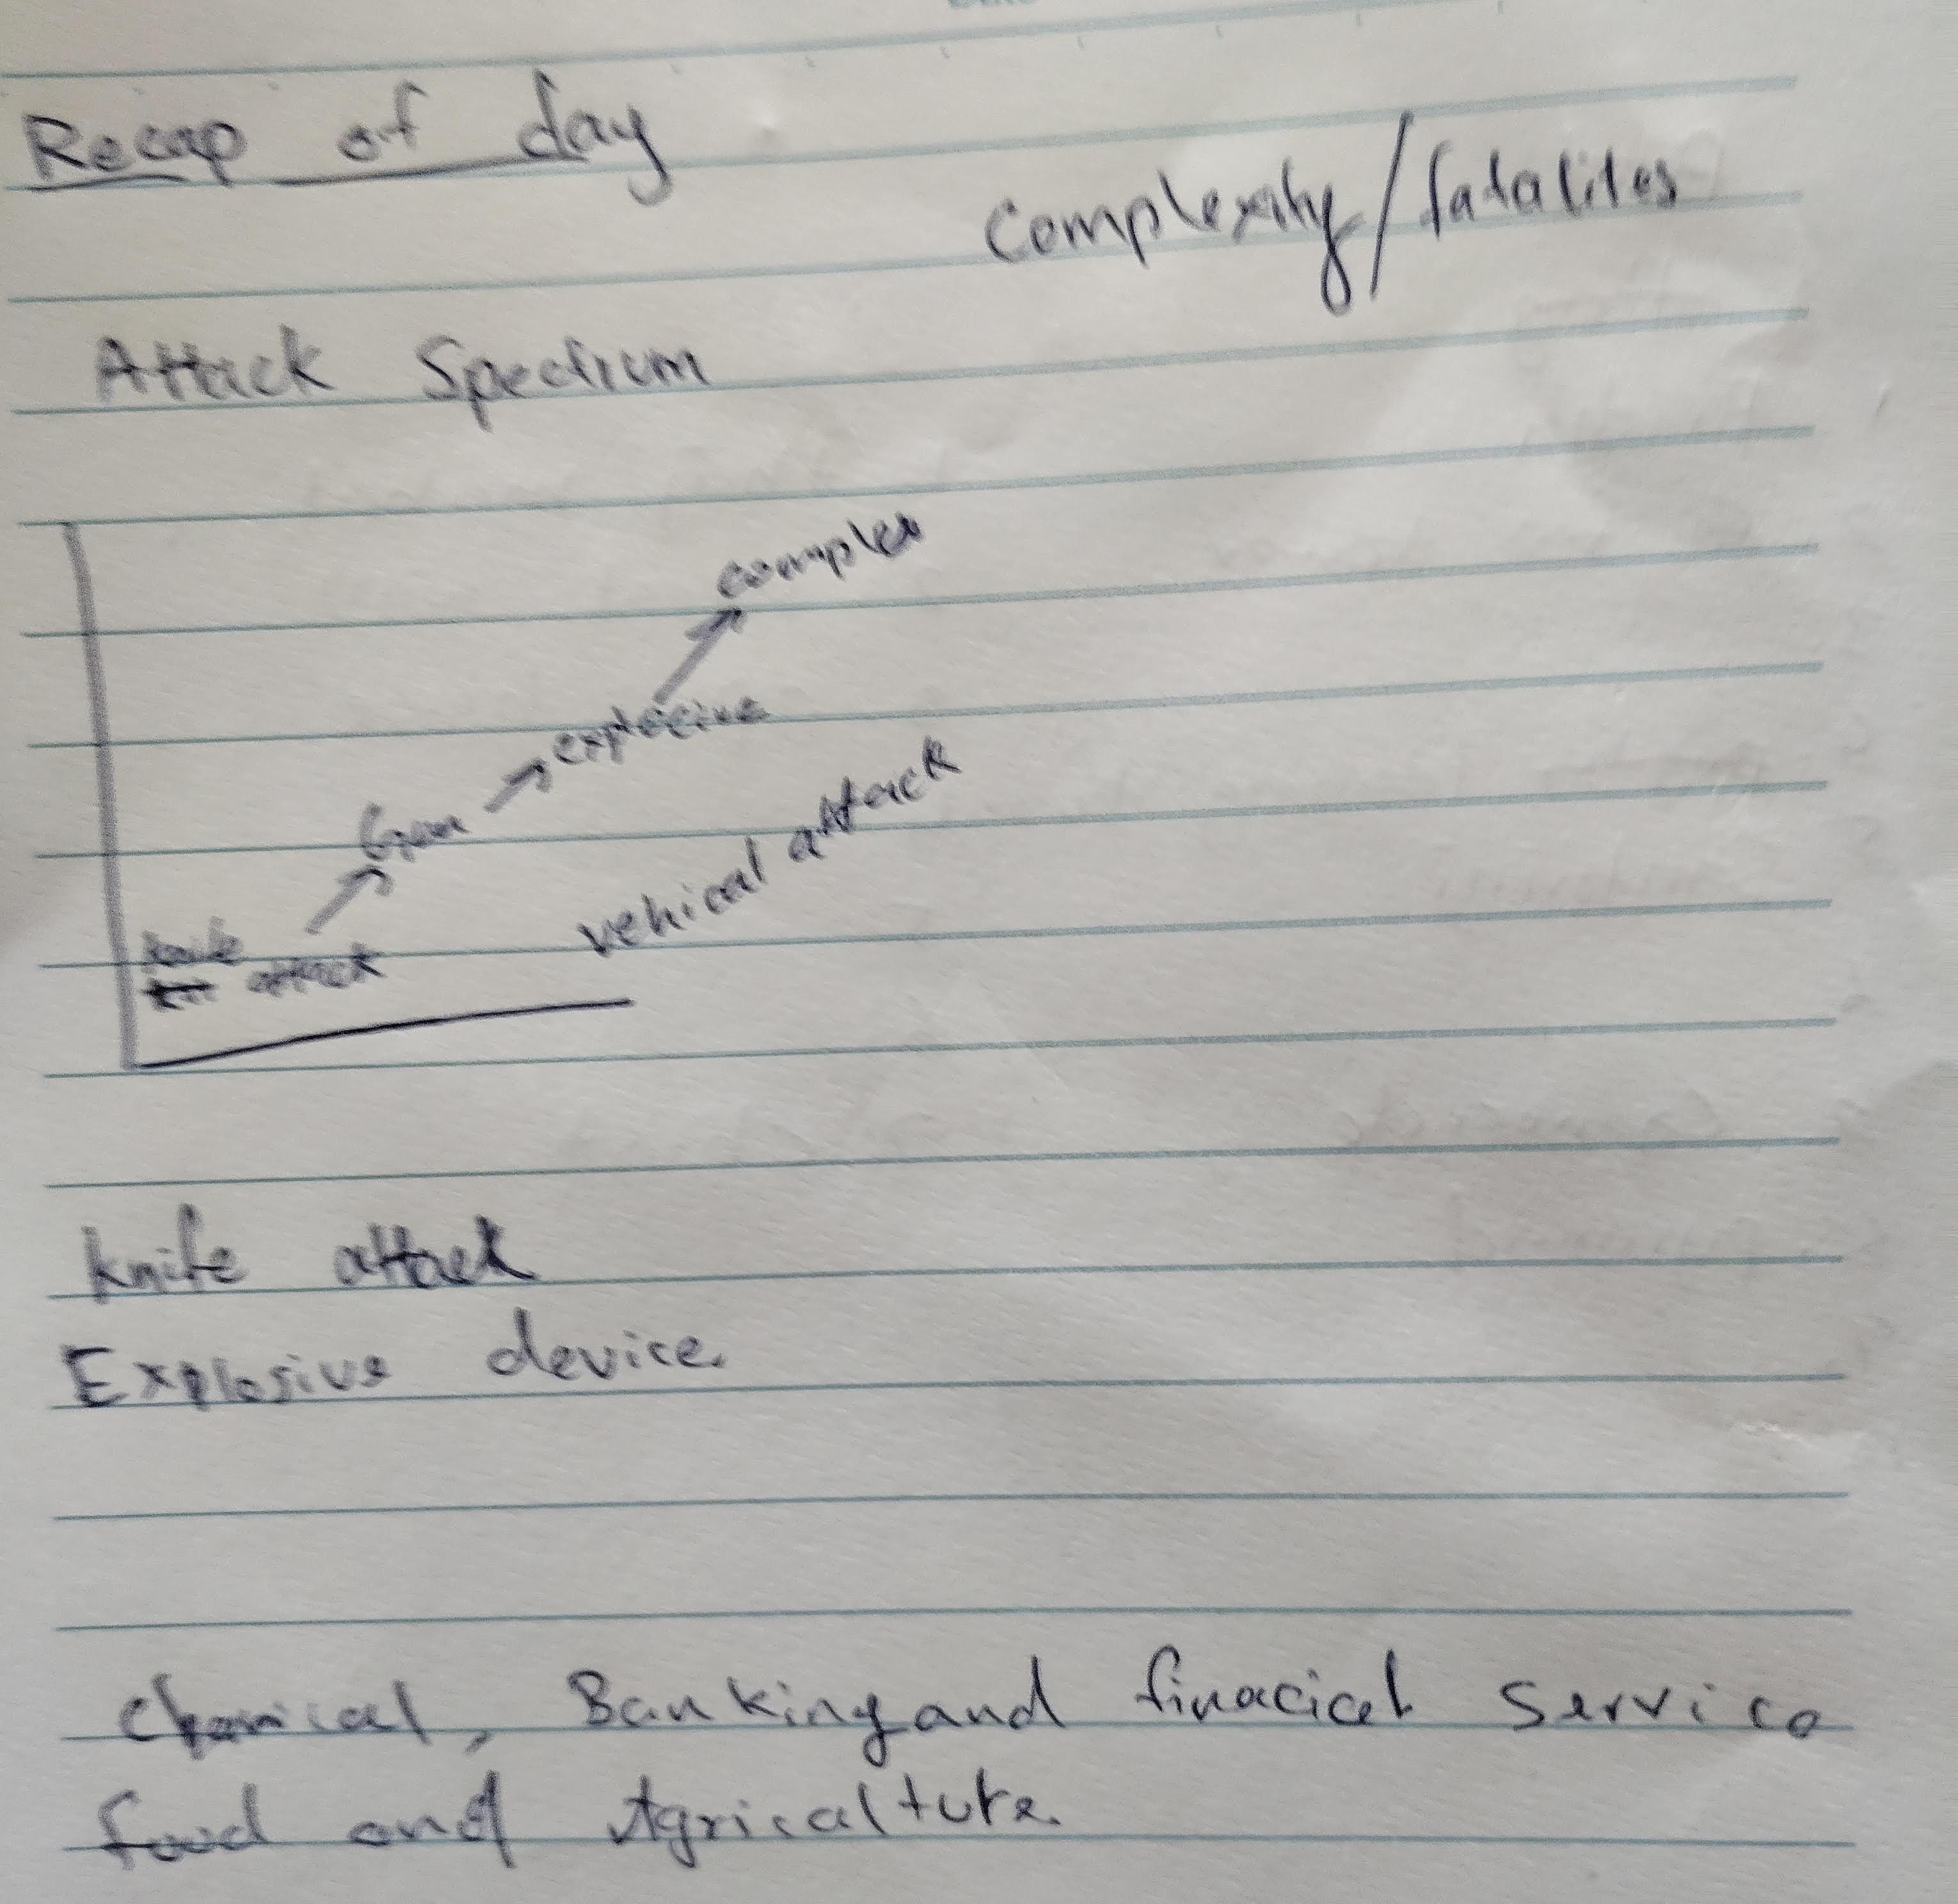 Recap of day
Complexity/fatalites
Attack Spectrum
complex
explosive
Gun
vehical attack
knife
attack
knife attack
Explosive device.
Chemical, Banking and finacical service
food and Agricalture.